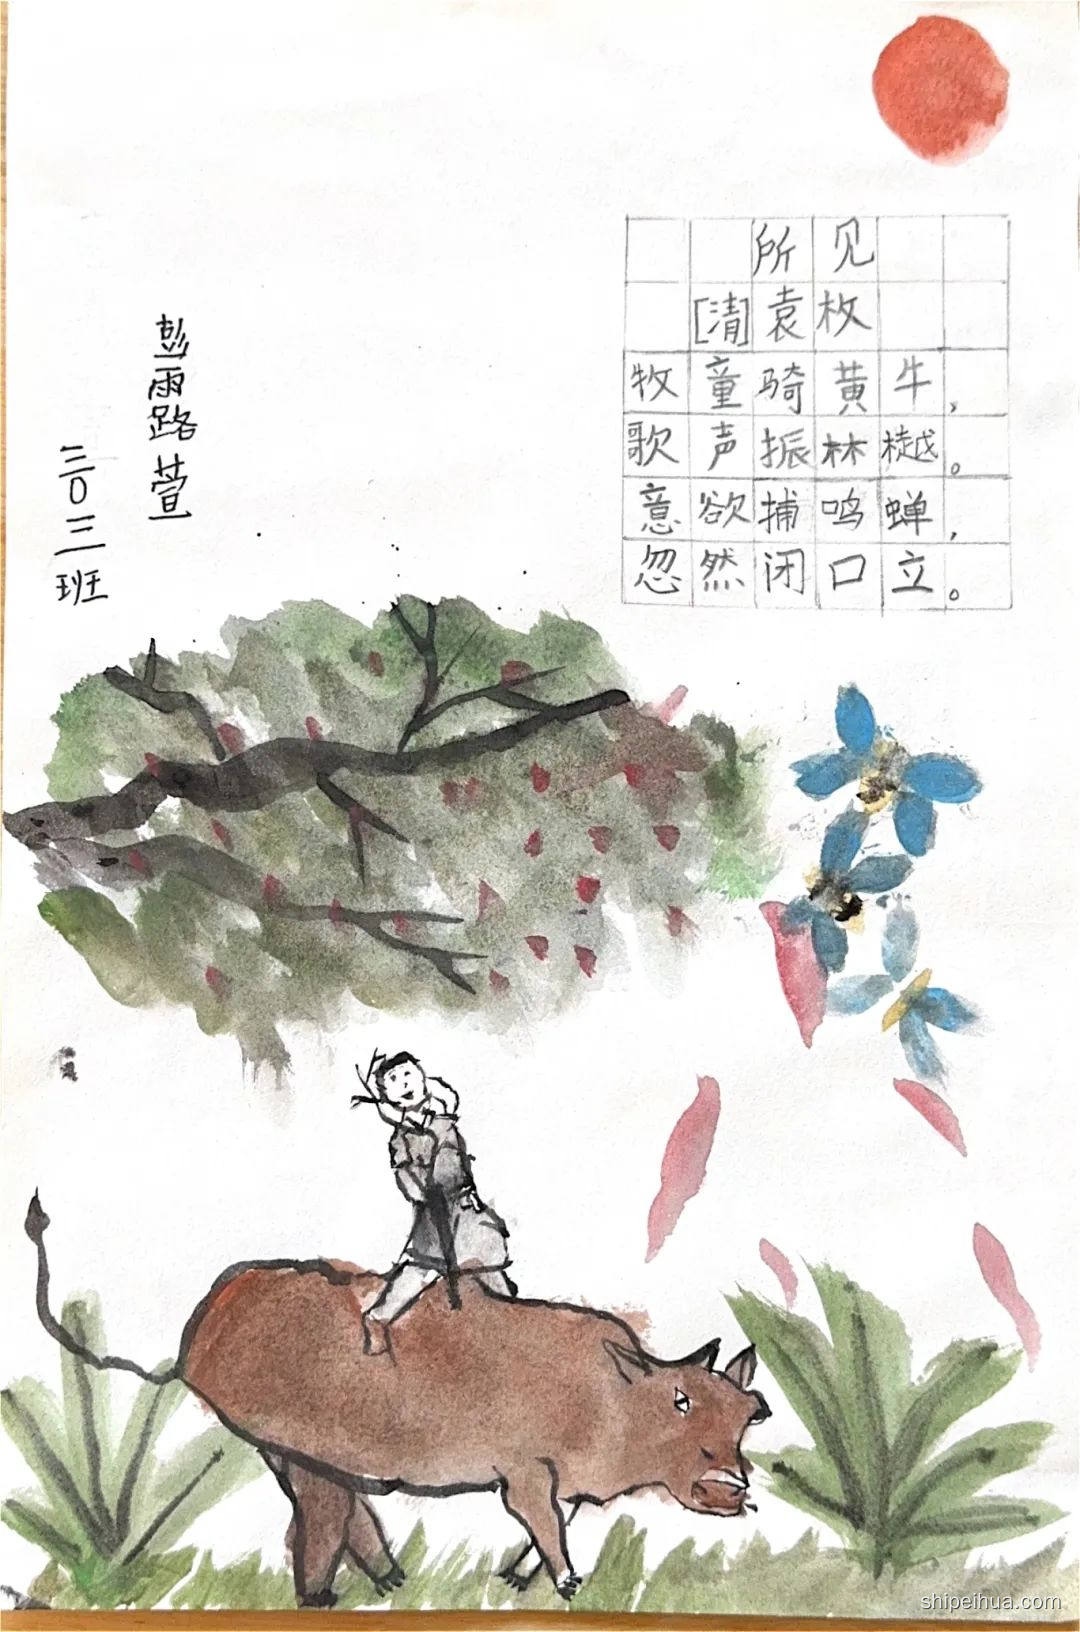 所见
[清]袁枚
牧童骑黄牛，
歌声振林樾。
意欲捕鸣蝉，
忽然闭口立。
彭雨路萱
三〇三班
shipeihua.com